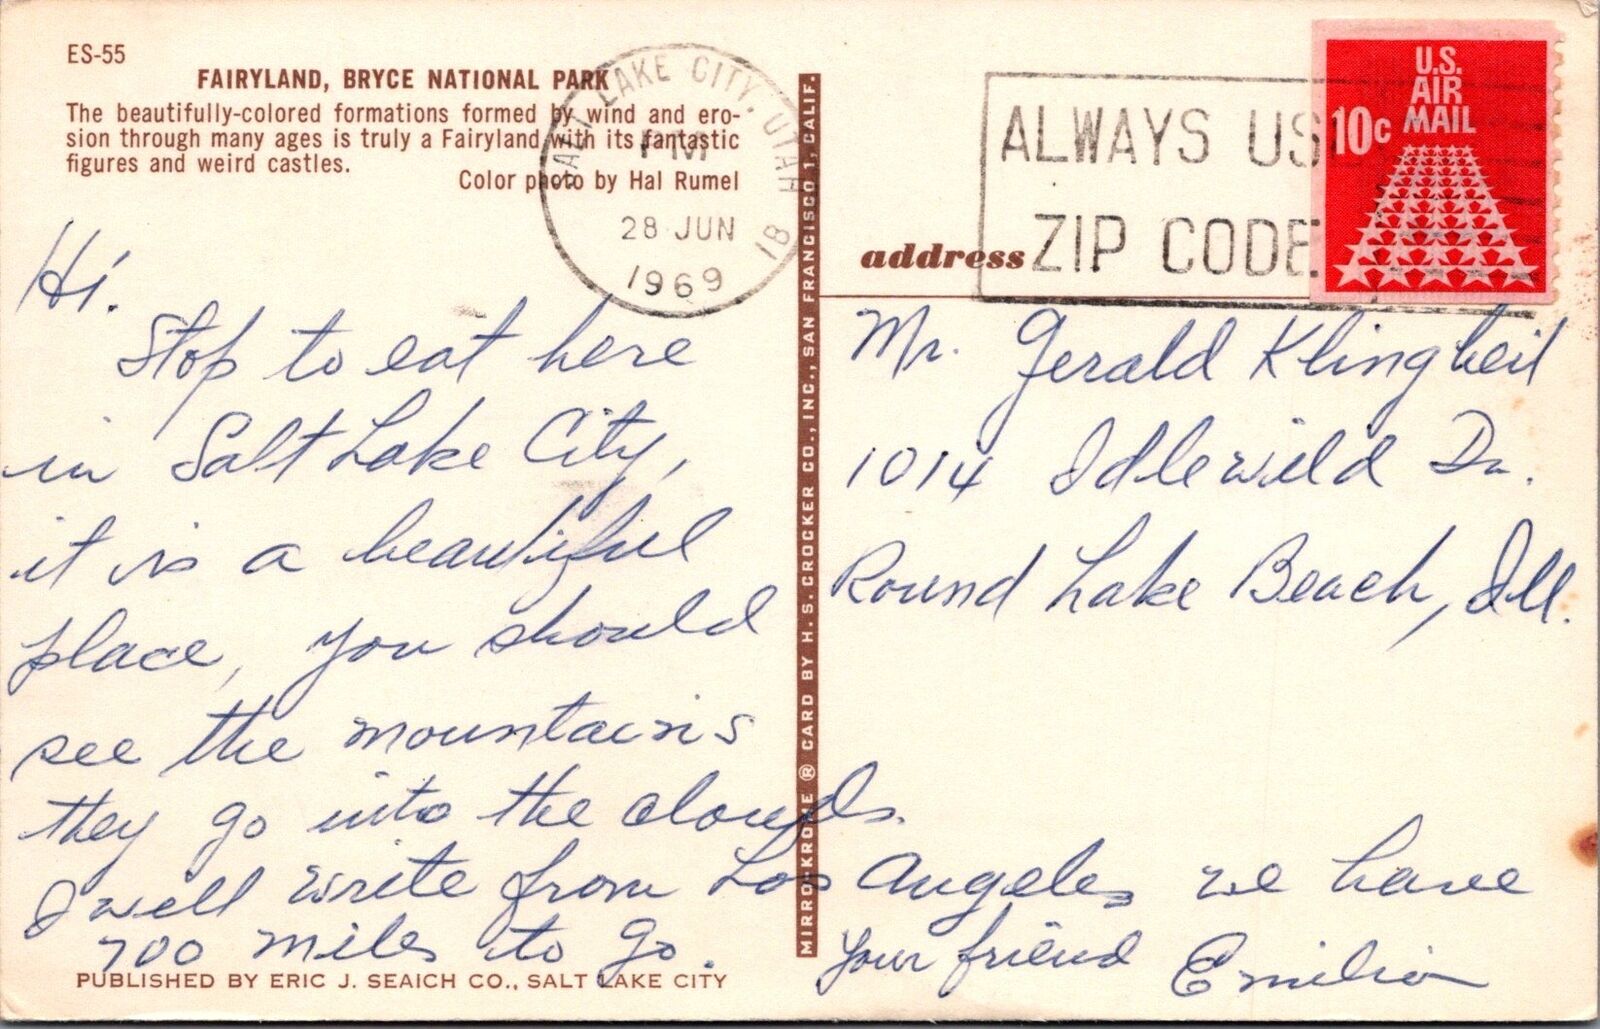 ES-55
FAIRYLAND, BRYCE NATIONAL PARK
The beautifully-colored formations formed by wind and ero-
sion through many ages is truly a Fairyland with its fantastic
figures and weird castles.
Color photo by Hal Rumel
SALT LAKE CITY, UTAH
PM
28 JUN
1969
18
ALWAYS US
ZIP CODE
U.S.
AIR
MAIL
10c
address
MIRRO-KROME ® CARD BY H. S. CROCKER CO., INC., SAN FRANCISCO 1, CALIF.
Hi.
Stop to eat here
in Salt Lake City,
it is a beautiful
place, you should
see the mountains
they go into the clouds.
I will write from Los Angeles we have
700 miles to go.
your friend Emilio
Mr. Gerald Klingbeil
1014 Idlewild Dr.
Round Lake Beach, Ill.
PUBLISHED BY ERIC J. SEAICH CO., SALT LAKE CITY